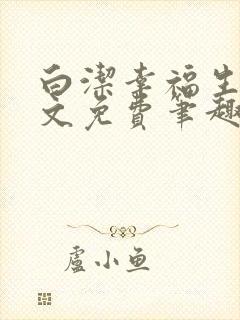 白潔幸福生
文免費筆趣
盧小魚